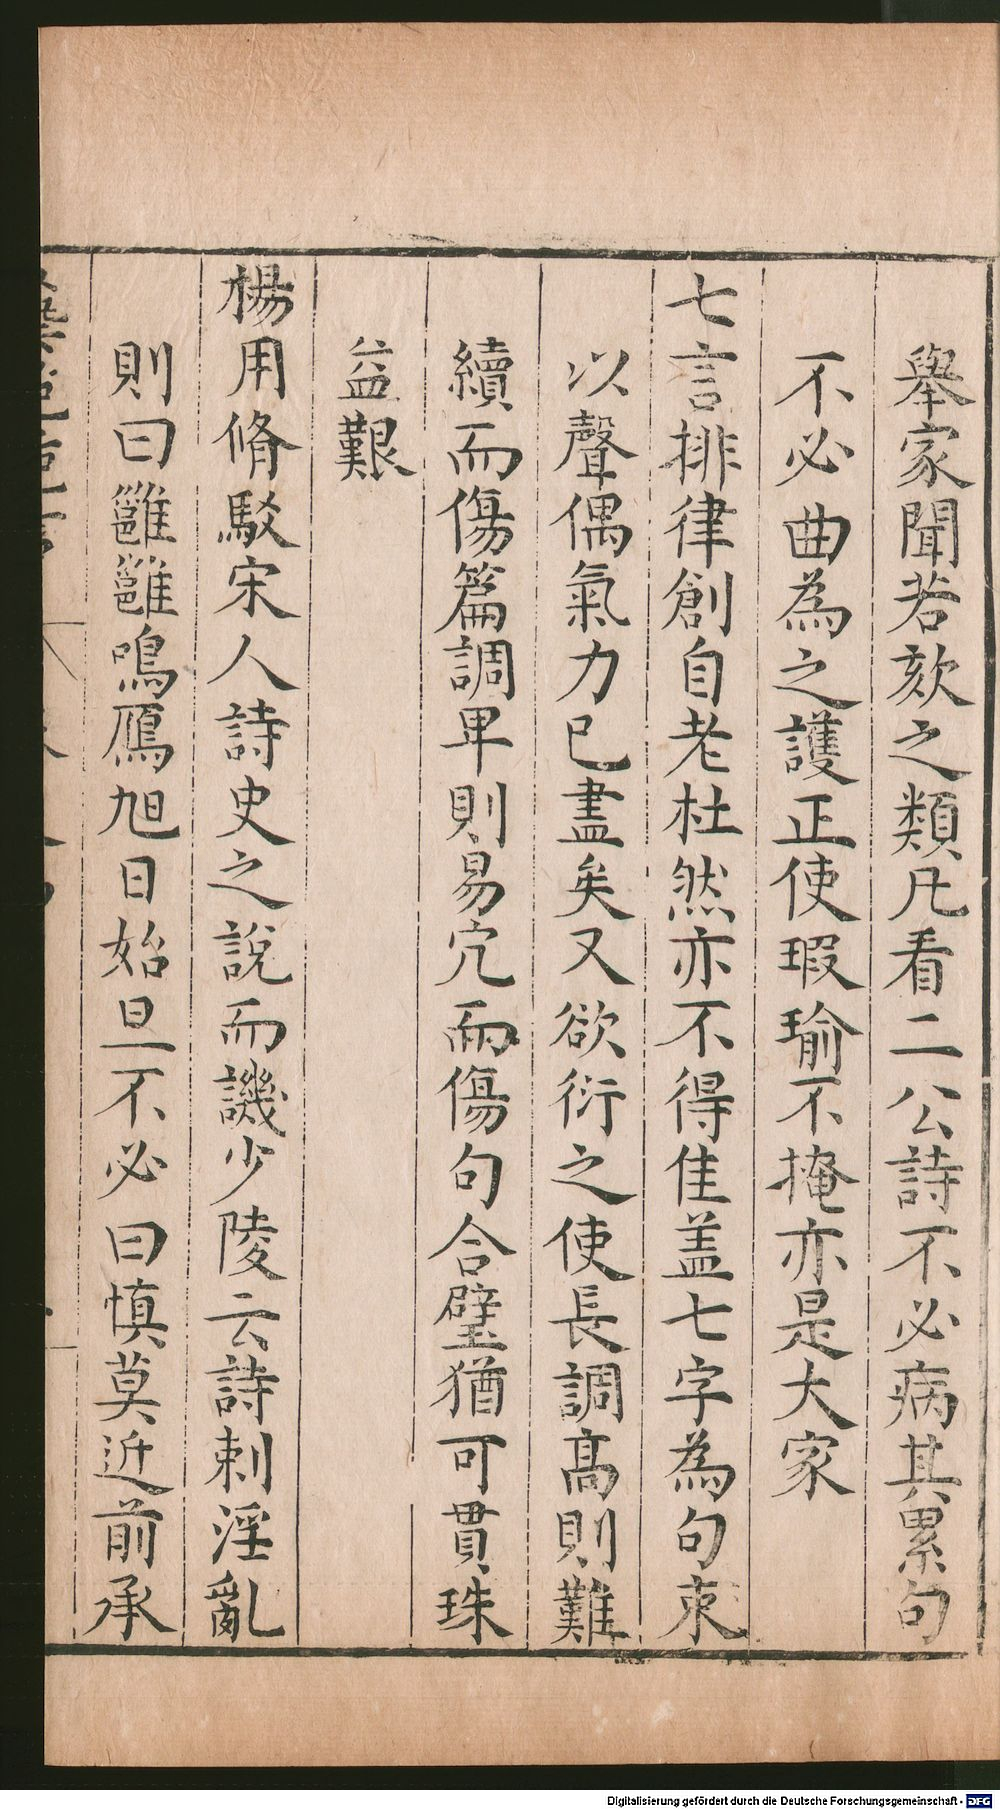 舉家聞若欬之類凡看二公詩不必病其累句
不必曲為之護正使瑕瑜不掩亦是大家
七言排律創自老杜然亦不得佳盖七字為句束
以聲偶氣力已盡矣又欲衍之使長調高則難
續而傷篇調卑則易冗而傷句合璧猶可貫珠
益艱
楊用脩駁宋人詩史之說而譏少陵云詩刺淫亂
則曰雝雝鳴鴈旭日始旦不必曰慎莫近前承
Digitalisierung gefördert durch die Deutsche Forschungsgemeinschaft - DFG